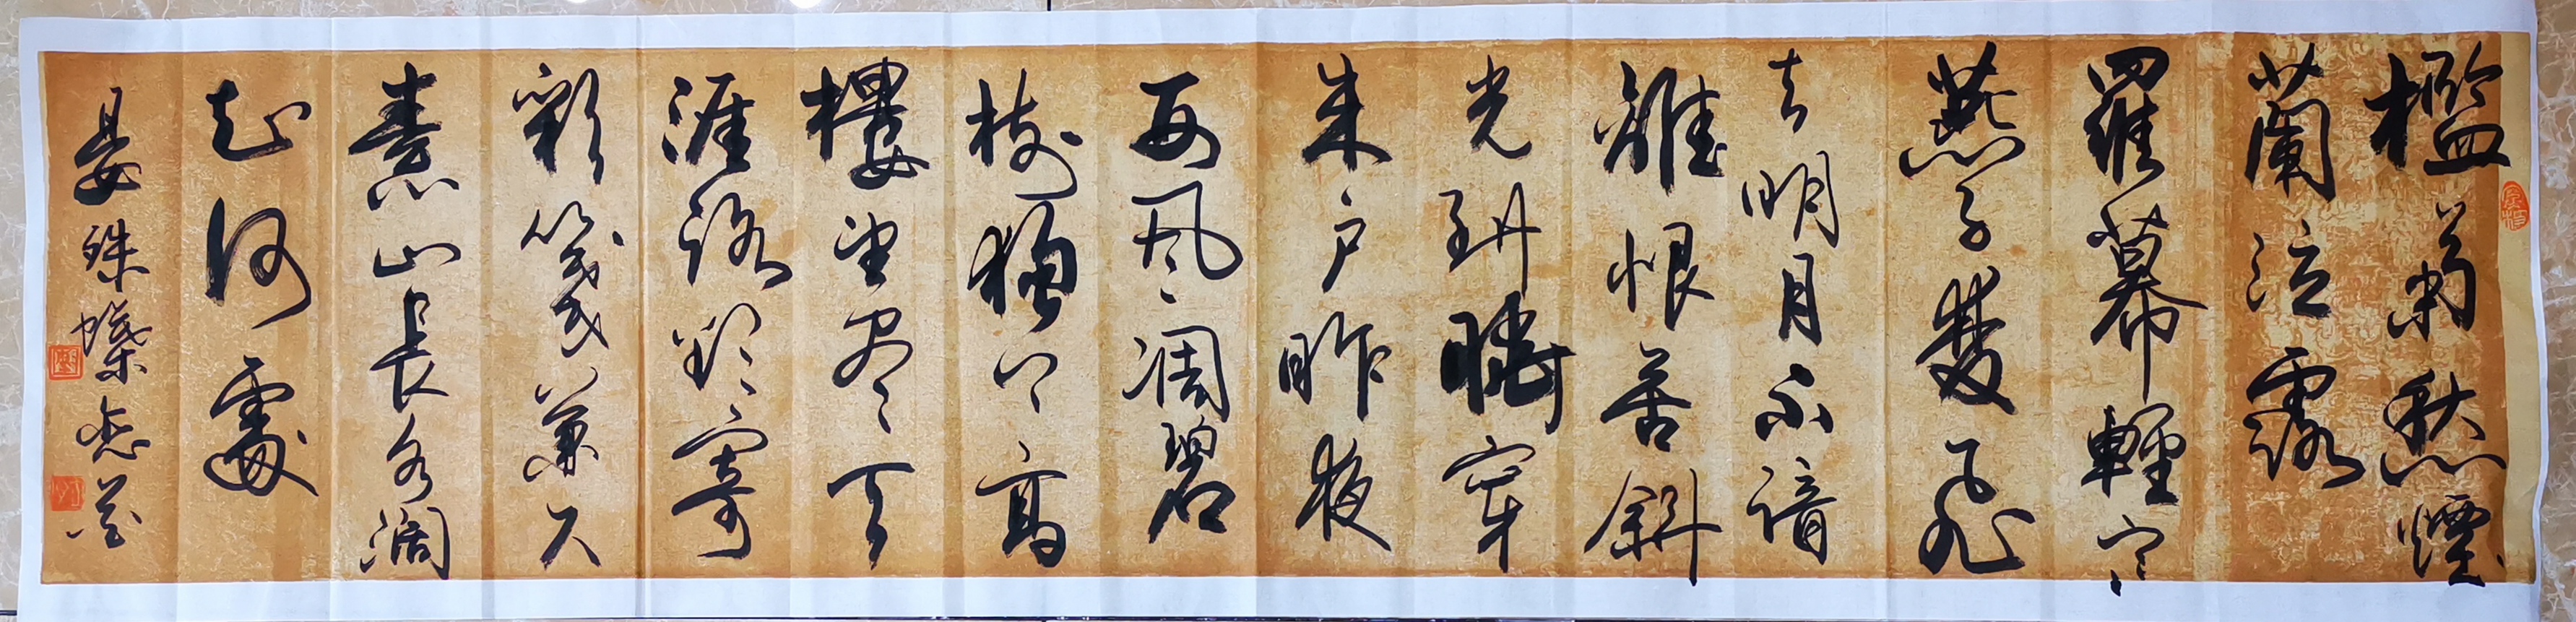 檻菊愁煙
蘭泣露
羅幕輕寒
燕子雙飛
去明月不諳
離恨苦斜
光到曉穿
朱戶昨夜
西風凋碧
樹獨上高
樓望尽天
涯路欲寄
彩箋兼尺
素山長水濶
知何處
晏殊蝶恋花